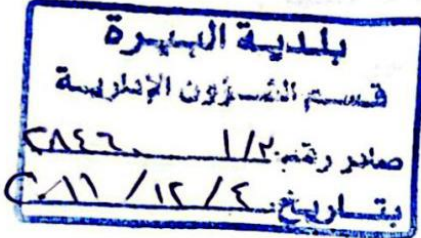 بلدية البيرة
قسم الشؤون الإدارية
صادر رقم ١/٢ ٢٨٤٦
بتاريخ ٤ / ١٢ / ٢٠١١